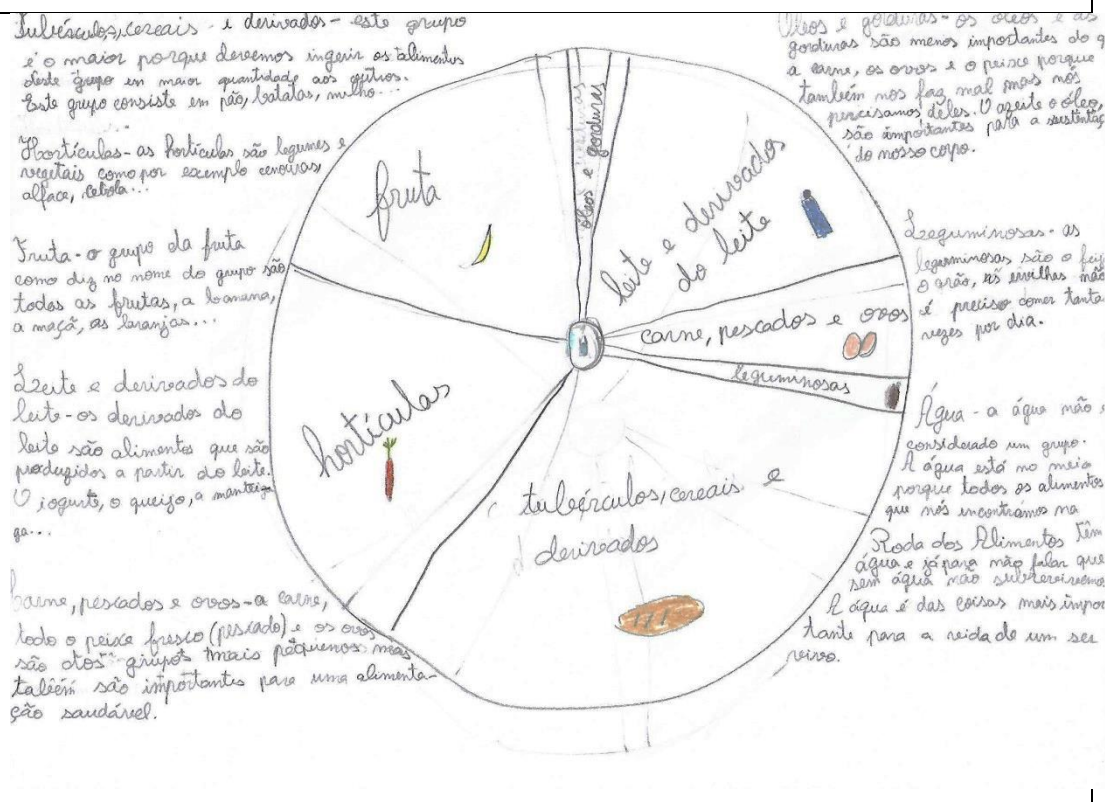 Tubésculos, cereais e derivados - este grupo
é o maior porque devemos ingerir os alimentos
deste grupo em maior quantidade aos outros.
Este grupo consiste em pão, batatas, milho...
Hortículas - as hortículas são legumes e
vegetais como por exemplo cenouras,
alface, cebola...
Fruta - o grupo da fruta
como diz no nome do grupo são
todas as frutas, a banana,
a maçã, as laranjas...
Leite e derivados do
leite - os derivados do
leite são alimentos que são
produzidos a partir do leite.
O iogurte, o queijo, a manteiga
ga...
Carne, pescados e ovos - a carne,
todo o peixe fresco (pescado) e os ovos
são dos grupos mais pequenos mas
também são importantes para uma alimenta-
ção saudável.
fruta
óleos e gorduras
leite e derivados
do leite
carne, pescados e ovos
leguminosas
hortículas
tubérculos, cereais e
derivados
Óleos e gorduras - os óleos e as
gorduras são menos importantes do q
a carne, os ovos e o peixe porque
também nos faz mal mas nós
percisamos deles. O azeite o óleo,
são importantes para a sustentaç
do nosso corpo.
Leguminosas - as
leguminosas são o feij
o grão, as ervilhas não
é preciso comer tanta
vezes por dia.
Água - a água não é
considerado um grupo.
A água está no meio
porque todos os alimentos
que nós encontrámos na
Roda dos Alimentos têm
água e já para não falar que
sem água não
A água é das coisas mais impor
tante para a vida de um ser
vivo.